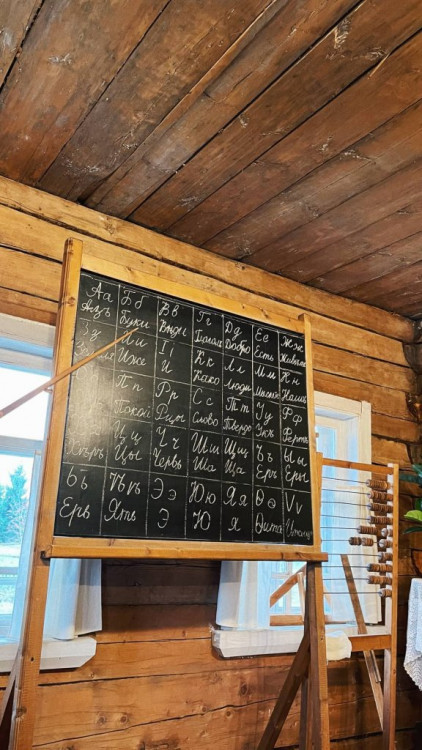 Аа Бб Вв Гг Дд Ее Жж
Азъ Буки Вѣди Глаголь Добро Есть Живѣте
Зз Ии Іі Кк Лл Мм Нн
Иже И Како Люди Мыслѣте Нашъ
Пп Рр Сс Тт Уу Фф
Покой Рцы Слово Твердо Укъ Фертъ
Цц Чч Шш Щщ Ъъ Ыы
Хѣръ Цы Червь Ша Ща Еръ Еры
Ьь Ѣѣ Ээ Юю Яя Ѳѳ Ѵѵ
Ерь Ять Э Ю Я Ѳита Ижица